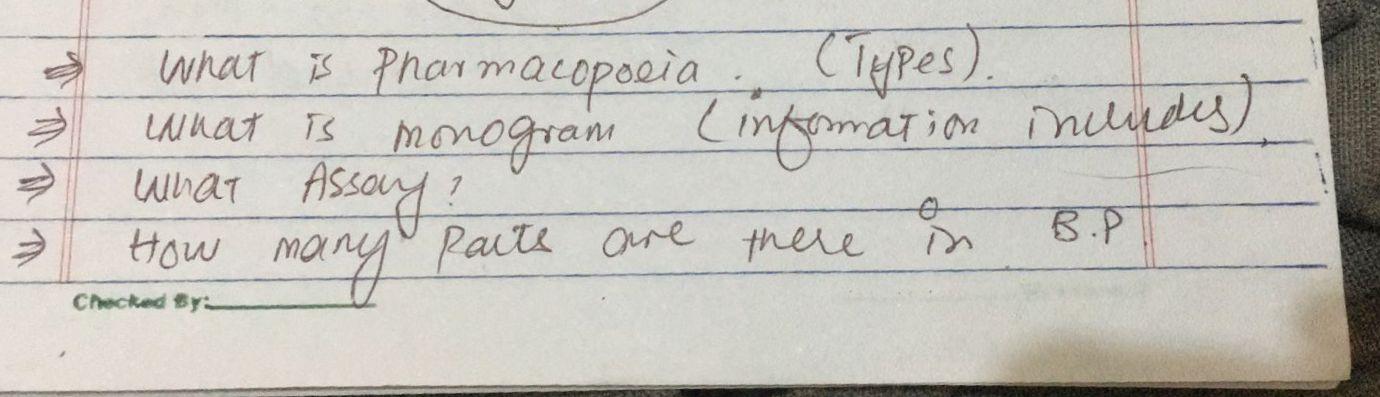 ⇒ What is Pharmacopoeia. (Types).
⇒ What is monogram (information includes)
⇒ What Assay?
⇒ How many Parts are there in B.P
Checked By: